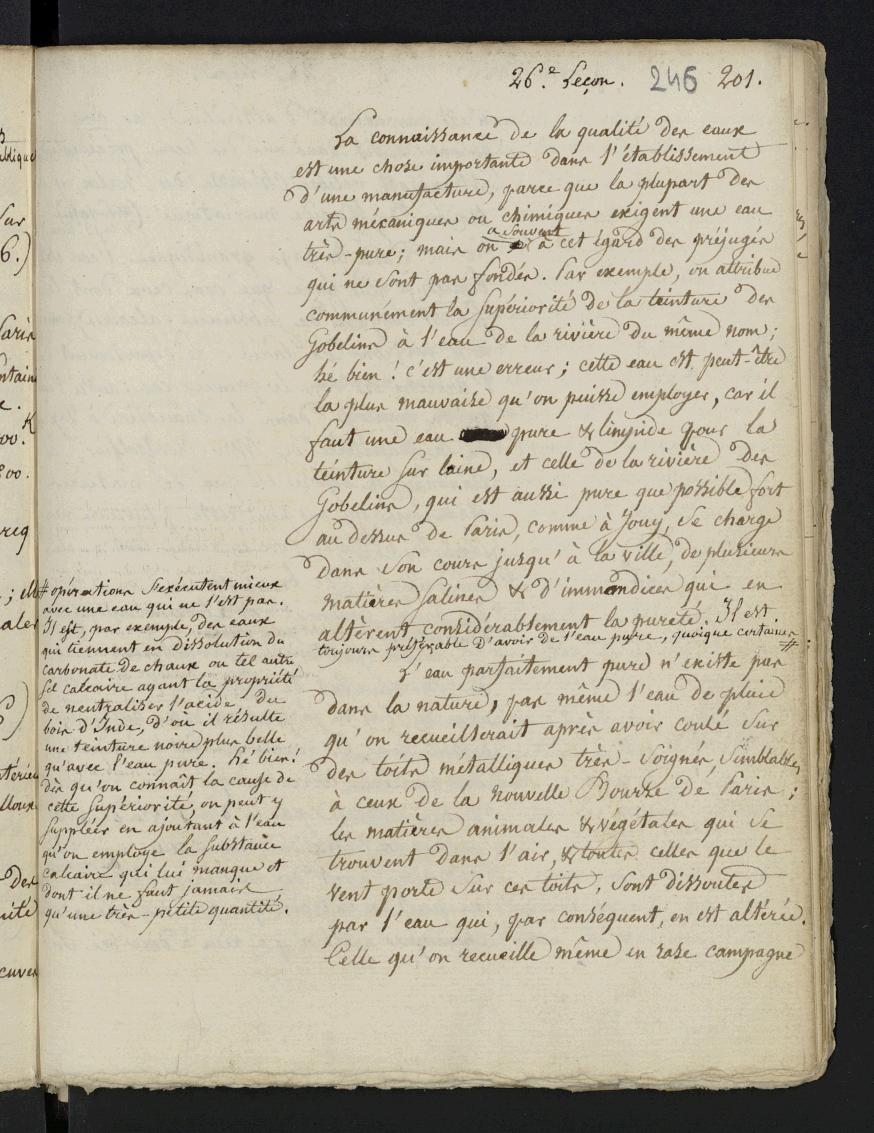 26.e Leçon. 246 201.
La connaissance de la qualité des eaux
est une chose importante dans l'établissement
d'une manufacture, parce que la plupart des
arts mécaniques ou chimiques exigent une eau
a souvent
très-pure; mais on à cet égard des préjugés
qui ne sont pas fondés. Par exemple, on attribue
communément la supériorité de la teinture des
Gobelins à l'eau de la rivière du même nom;
hé bien! c'est une erreur; cette eau est peut-être
la plus mauvaise qu'on puisse employer, car il
faut une eau pure & limpide pour la
teinture sur laine, et celle de la rivière des
Gobelins, qui est aussi pure que possible fort
au dessus de Paris, comme à Jouy, se charge
dans son cours jusqu'à la ville, de plusieurs
matières salines & d'immondices qui en
altèrent considérablement la pureté. Il est
toujours préférable d'avoir de l'eau pure, quoique certaines #
# opérations s'exécutent mieux
avec une eau qui ne l'est pas.
Il est, par exemple, des eaux
qui tiennent en dissolution du
carbonate de chaux ou tel autre
sel calcaire ayant la propriété
de neutraliser l'acide du
bois d'Inde, d'où il résulte
une teinture noire plus belle
qu'avec l'eau pure. hé bien!
dès qu'on connaît la cause de
cette supériorité, on peut y
suppléer en ajoutant à l'eau
qu'on employe la substance
calcaire qui lui manque et
dont il ne faut jamais
qu'une très-petite quantité.
L'eau parfaitement pure n'existe pas
dans la nature, pas même l'eau de pluie
qu'on recueillerait après avoir coulé sur
des toits métalliques très-soignés, semblables
à ceux de la nouvelle Bourse de Paris;
les matières animales & végétales qui se
trouvent dans l'air, & toutes celles que le
vent porte sur ces toits, sont dissoutes
par l'eau qui, par conséquent, en est altérée.
Celle qu'on recueille même en rase campagne